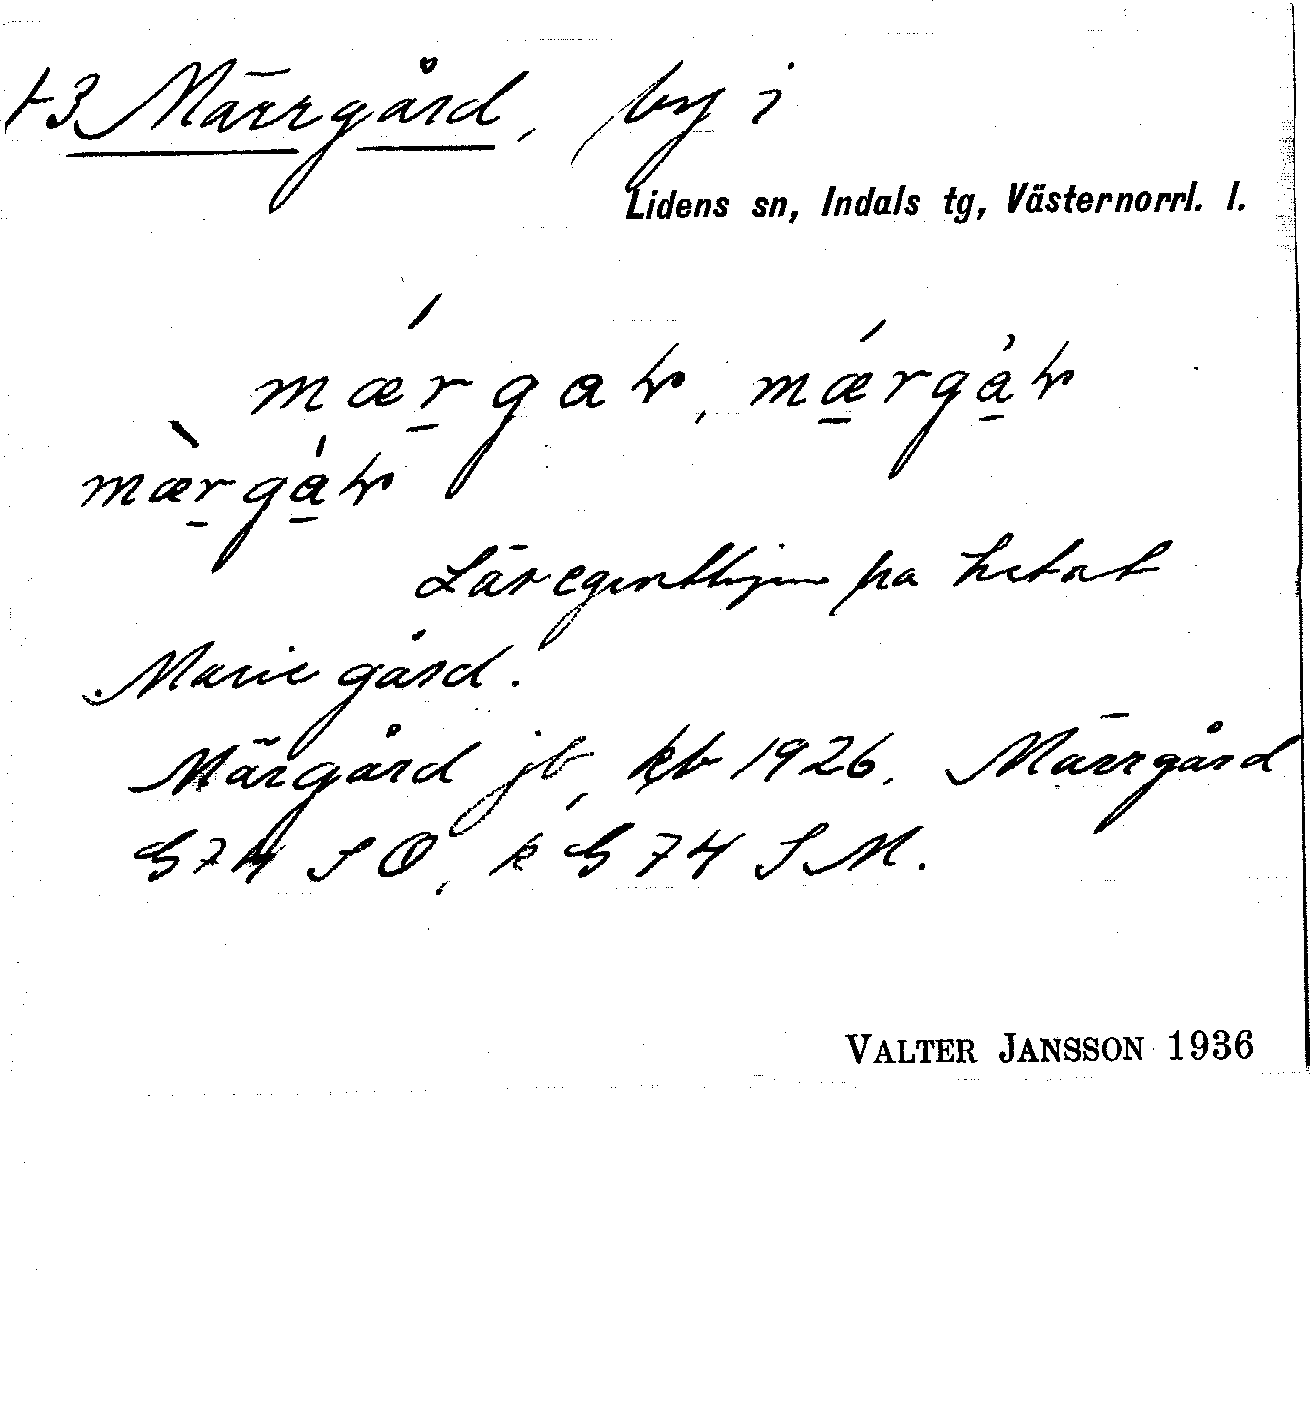 t3 Märrgård, by i
Lidens sn, Indals tg, Västernorrl. l.
mærgaɽ, mǽrgàɽ
mærgáɽ
Lär egentligen ha hetat
Marie gård.
Märgård jb, kb 1926. Märrgård
G74 SO, k G 74 SM.
VALTER JANSSON 1936